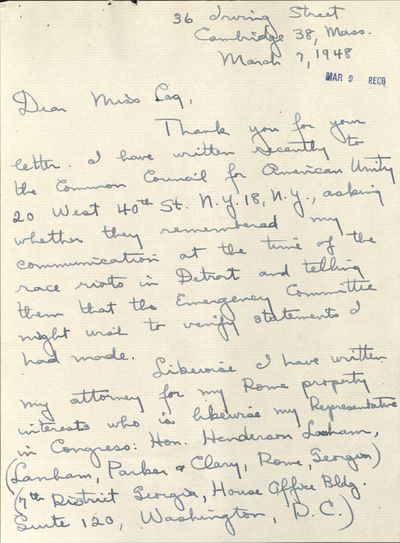 36 Irving Street
Cambridge 38, Mass.
March 7, 1948
MAR 9 RECD
Dear Miss Lag,
Thank you for your
letter. I have written recently to
the Common Council for American Unity
20 West 40th St. N.Y. 18, N.Y., asking
whether they remembered my
communication at the time of the
race riots in Detroit and telling
them that the Emergency Committee
might wish to verify statements I
had made.
Likewise I have written
my attorney for my Rome property
interests who is likewise my Representative
in Congress: Hon. Henderson Lanham,
(Lanham, Parker & Clary, Rome, Georgia)
(7th District Georgia, House Office Bldg.
Suite 120, Washington, D.C.)